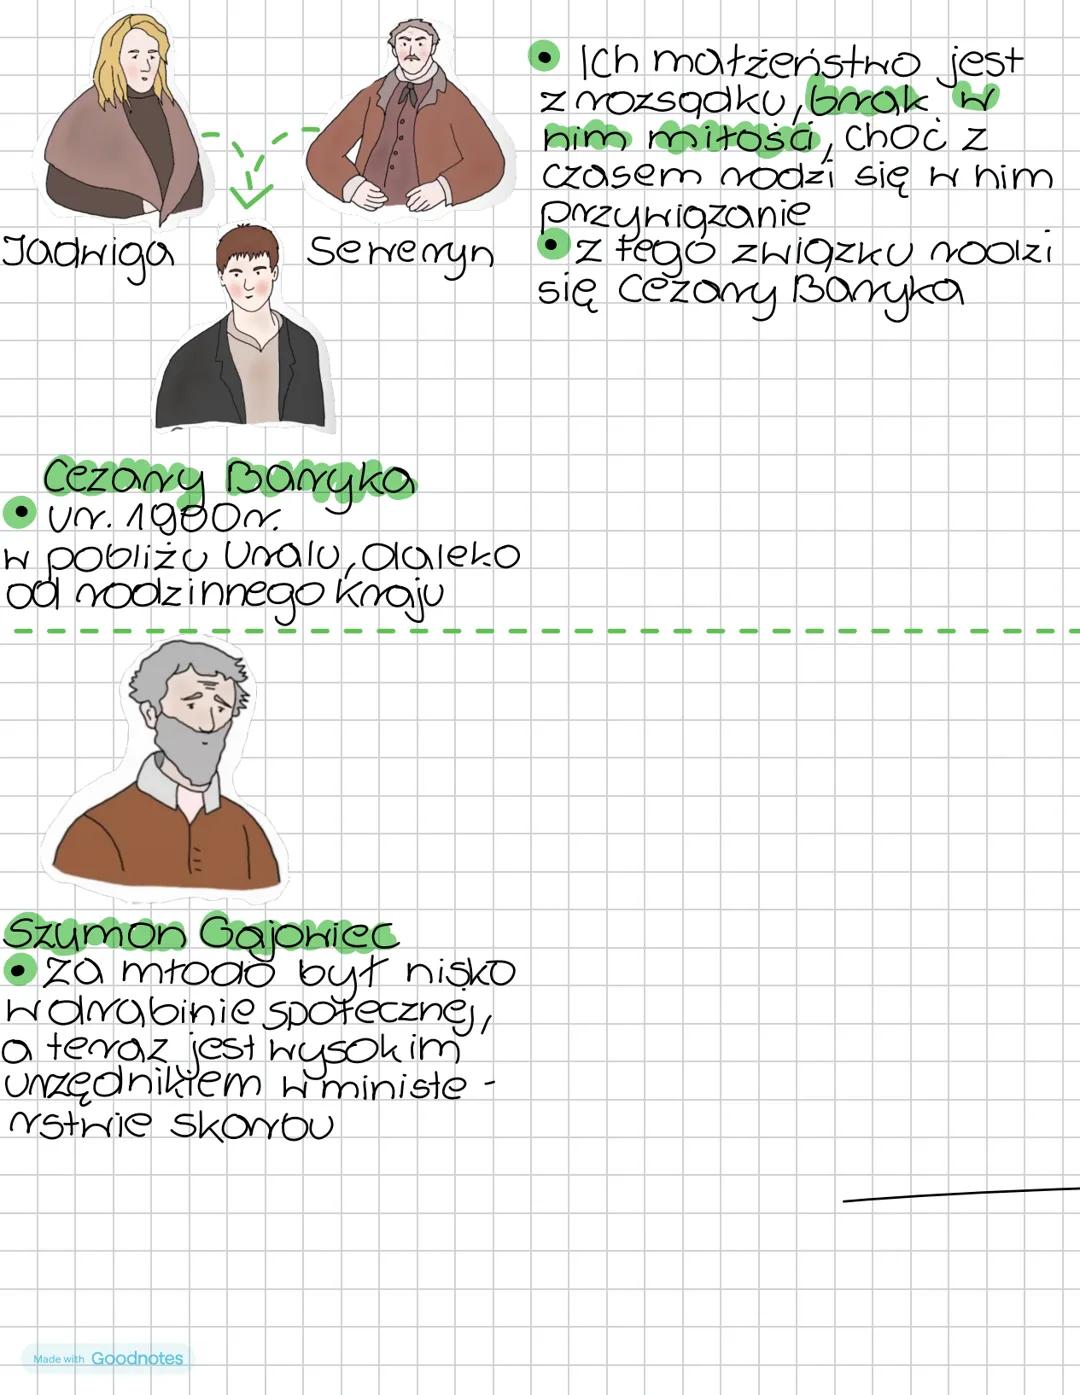 Jadwiga
Seweryn
• Ich małżeństwo jest
z rozsądku, brak w
nim miłości, choć z
czasem rodzi się w nim
przywiązanie
• z tego związku rodzi
się Cezary Baryka
Cezary Baryka
• ur. 1900r.
w pobliżu Uralu, daleko
od rodzinnego kraju
Szymon Gajowiec
• za młodo był nisko
w drabinie społecznej,
a teraz jest wysokim
urzędnikiem w ministe-
rstwie skarbu
Made with Goodnotes